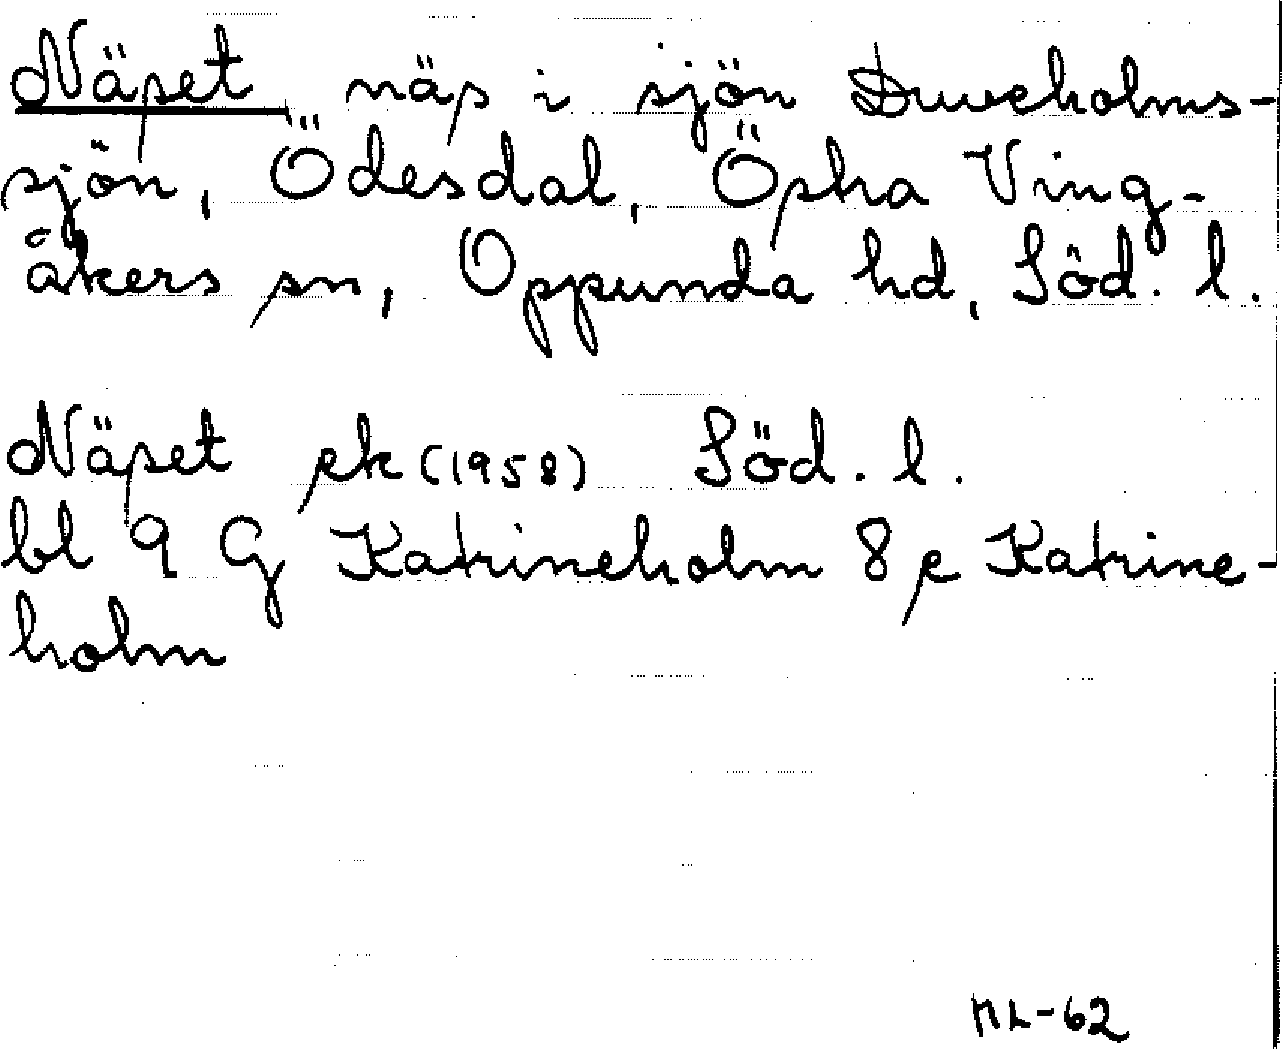 Näset näs i sjön Duveholms-
sjön, Ödesdal, Östra Ving-
åkers sn, Oppunda hd, Söd. l.
Näset ek (1958) Söd. l.
bl 9 G Katrineholm 8 e Katrine-
holm
NL-62